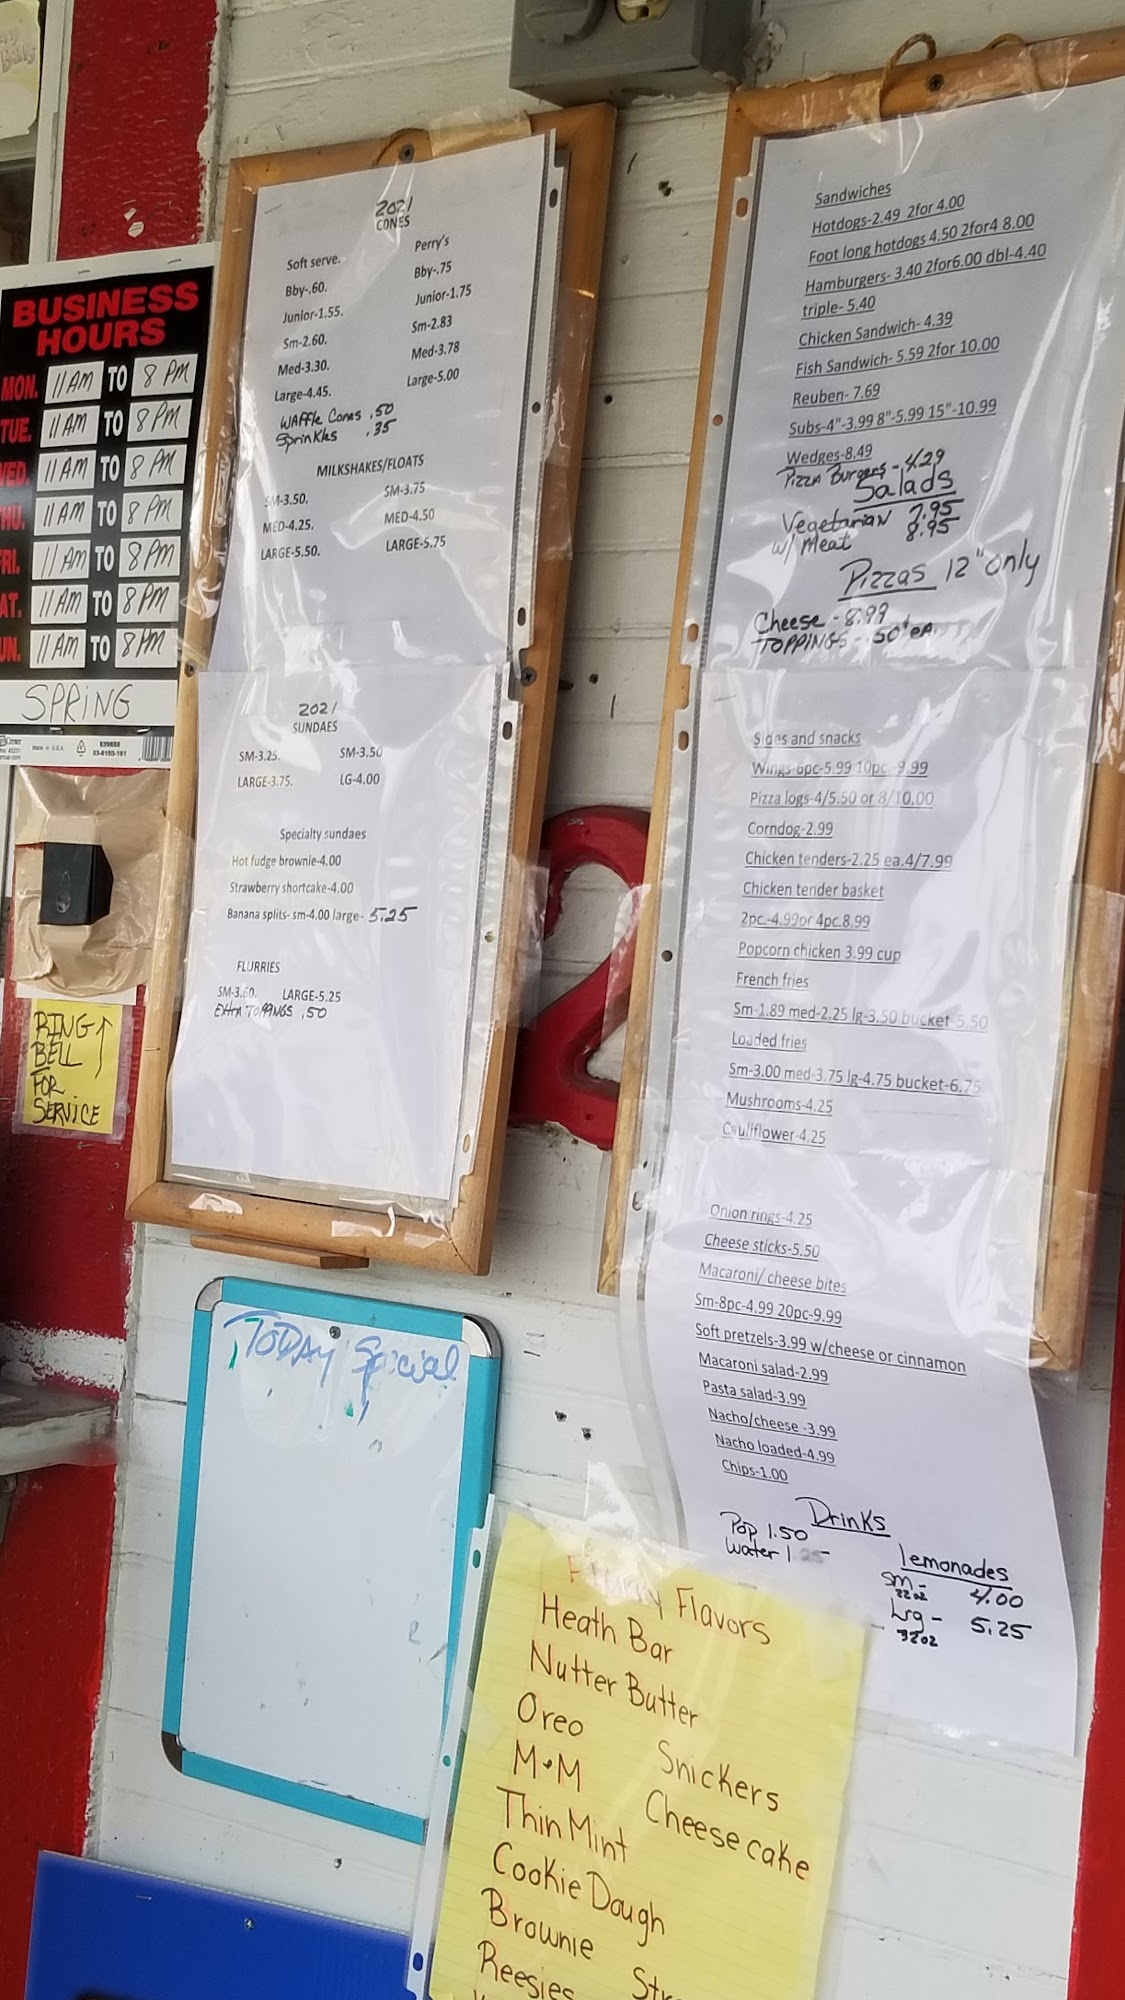 BUSINESS
HOURS
MON. 11 AM TO 8 PM
TUE. 11 AM TO 8 PM
WED. 11 AM TO 8 PM
THU. 11 AM TO 8 PM
FRI. 11 AM TO 8 PM
SAT. 11 AM TO 8 PM
SUN. 11 AM TO 8 PM
SPRING
RING
BELL
FOR
SERVICE
2021
CONES
Soft serve. Perry's
Bby-.60. Bby-.75
Junior-1.55. Junior-1.75
Sm-2.60. Sm-2.83
Med-3.30. Med-3.78
Large-4.45. Large-5.00
WAFFle Cones .50
Sprinkles .35
MILKSHAKES/FLOATS
SM-3.50. SM-3.75
MED-4.25. MED-4.50
LARGE-5.50. LARGE-5.75
2021
SUNDAES
SM-3.25. SM-3.50
LARGE-3.75. LG-4.00
Specialty sundaes
Hot fudge brownie-4.00
Strawberry shortcake-4.00
Banana splits- sm-4.00 large- 5.25
FLURRIES
SM-3.60. LARGE-5.25
Extra TOPPINGS .50
TODAY Special
2
Sandwiches
Hotdogs-2.49 2for 4.00
Foot long hotdogs 4.50 2for4 8.00
Hamburgers- 3.40 2for6.00 dbl-4.40
triple- 5.40
Chicken Sandwich- 4.39
Fish Sandwich- 5.59 2for 10.00
Reuben- 7.69
Subs-4"-3.99 8"-5.99 15"-10.99
Wedges-8.49
Pizza Burgers - 4.29
Salads
Vegetarian 7.95
w/ Meat 8.95
Pizzas 12" only
Cheese - 8.99
TOPPINGS - 50¢ eA.
Sides and snacks
Wings-6pc-5.99 10pc -9.99
Pizza logs-4/5.50 or 8/10.00
Corndog-2.99
Chicken tenders-2.25 ea.4/7.99
Chicken tender basket
2pc.-4.99or 4pc.8.99
Popcorn chicken 3.99 cup
French fries
Sm-1.89 med-2.25 lg-3.50 bucket-5.50
Loaded fries
Sm-3.00 med-3.75 lg-4.75 bucket-6.75
Mushrooms-4.25
Cauliflower-4.25
Onion rings-4.25
Cheese sticks-5.50
Macaroni/ cheese bites
Sm-8pc-4.99 20pc-9.99
Soft pretzels-3.99 w/cheese or cinnamon
Macaroni salad-2.99
Pasta salad-3.99
Nacho/cheese -3.99
Nacho loaded-4.99
Chips-1.00
Drinks
Pop 1.50
Water 1.25
lemonades
sm- 4.00
22oz
Lrg - 5.25
32oz
Flurry Flavors
Heath Bar
Nutter Butter
Oreo Snickers
M&M Cheesecake
Thin Mint
Cookie Dough
Brownie
Reesies